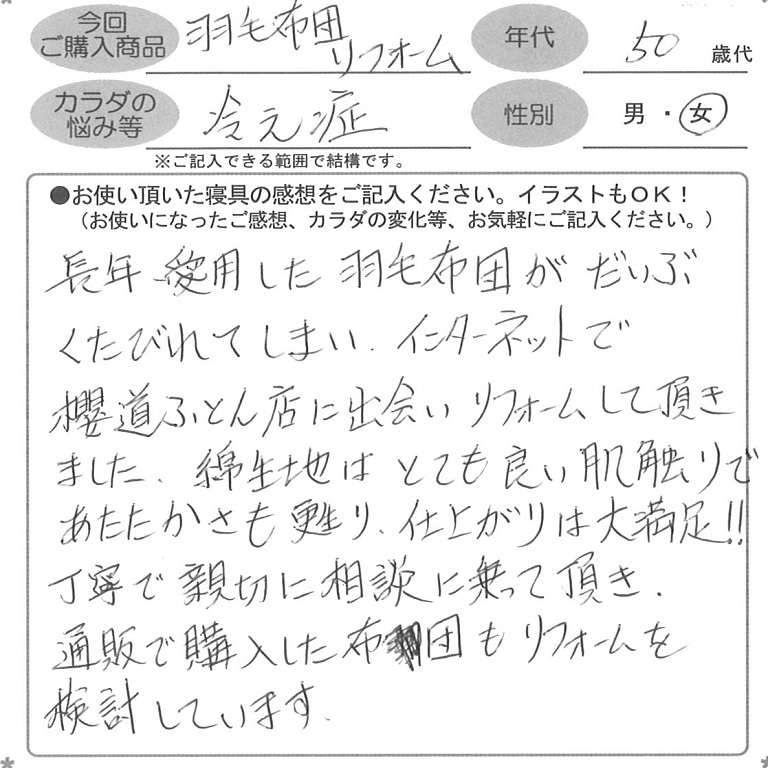 今回
ご購入商品
羽毛布団
リフォーム
年代
50
歳代
カラダの
悩み等
冷え症
性別
男・女
※ご記入できる範囲で結構です。
●お使い頂いた寝具の感想をご記入ください。イラストもOK!
(お使いになったご感想、カラダの変化等、お気軽にご記入ください。)
長年愛用した羽毛布団がだいぶ
くたびれてしまい、インターネットで
櫻道ふとん店に出会いリフォームして頂き
ました。綿生地はとても良い肌触りで
あたたかさも甦り、仕上がりは大満足!!
丁寧で親切に相談に乗って頂き、
通販で購入した布団もリフォームを
検討しています。